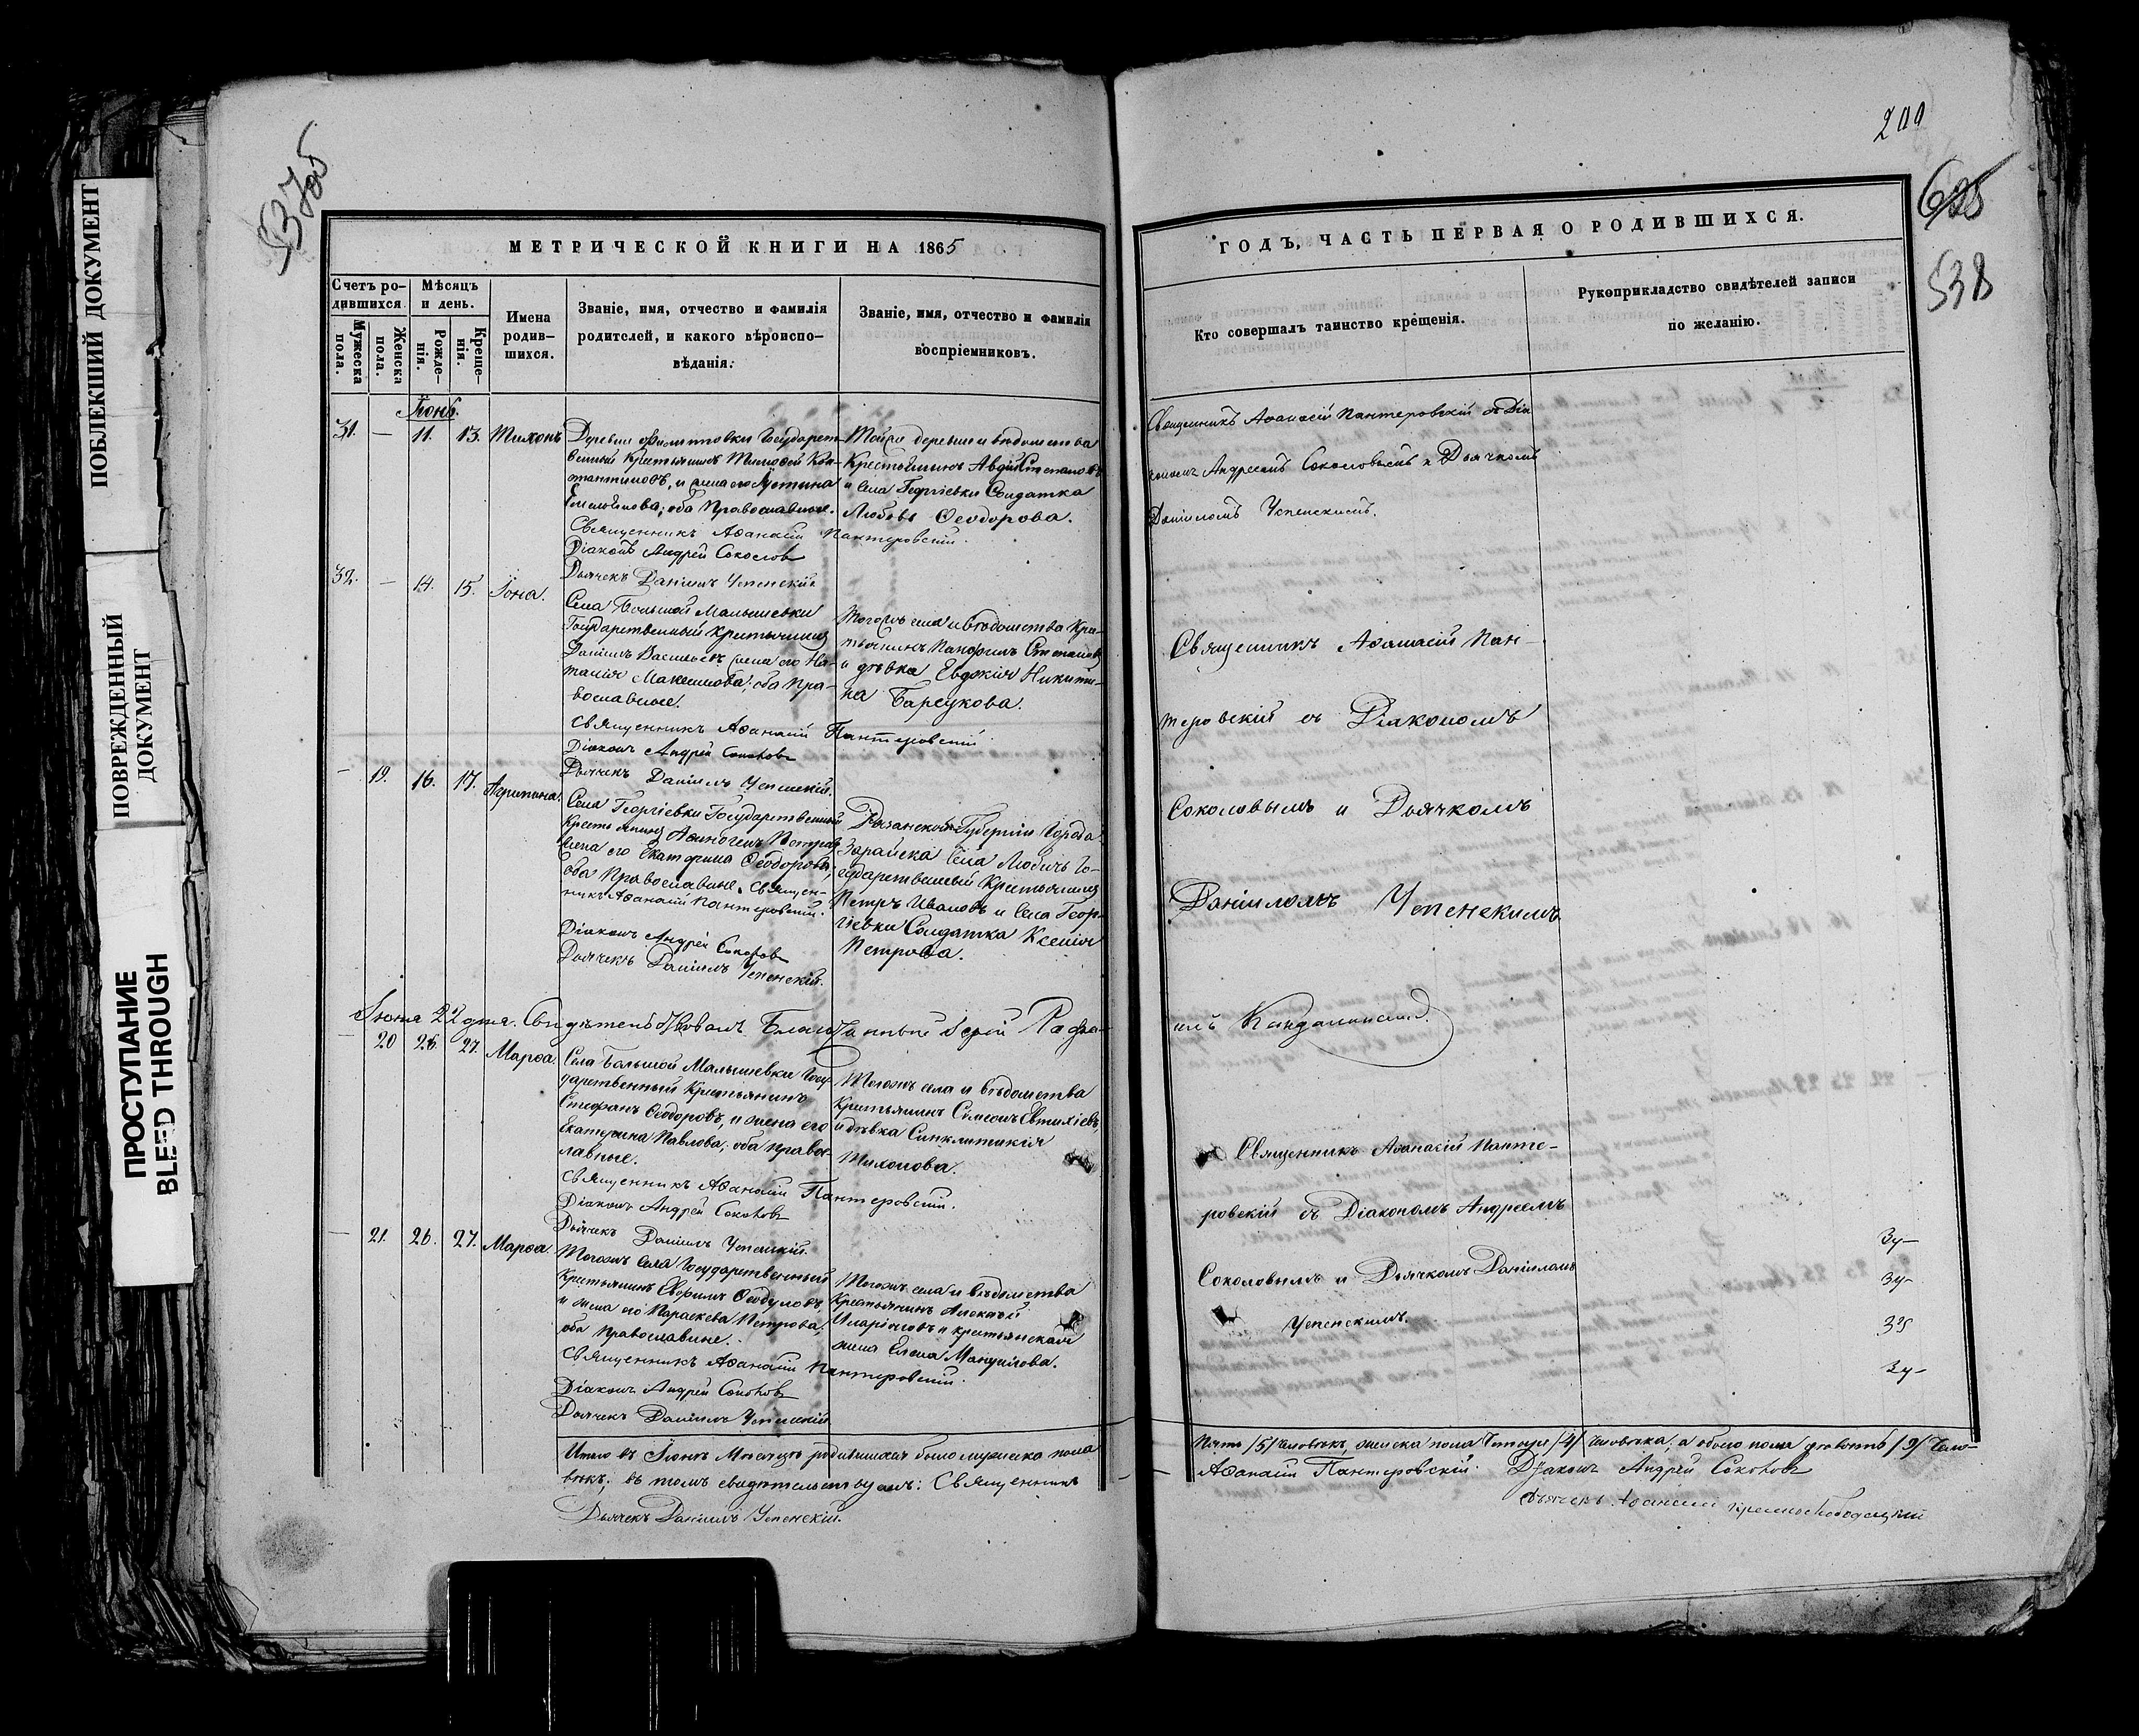 ПОБЛЕКШИЙ ДОКУМЕНТ
ПОВРЕЖДЕННЫЙ
ДОКУМЕНТ
ПРОСТУПАНИЕ
BLEED THROUGH
МЕТРИЧЕСКОЙ КНИГИ НА 1865
Счетъ ро-
дившихся.
Мѣсяцъ
и день.
Мужеска
пола.
Женска
пола.
Рожде-
нія.
Креще-
нія.
Имена
родив-
шихся.
Званіе, имя, отчество и фамилія
родителей, и какого вѣроиспо-
вѣданія.
Званіе, имя, отчество и фамилія
воспріемниковъ.
Іюнь.
31. — 11. 13. Тихонъ
Деревни Филиповки Государст-
венный Крестьянинъ Тимофей Кон-
стантиновъ, и жена его Устина
Емельянова; оба Православные.
Тойже деревни и вѣдомства
Крестьянинъ Авдій Степановъ
и села Георгіевки Солдатка
Любовь Ѳеодорова.
Священникъ Аѳанасій Пантеровскій.
Діаконъ Андрей Соколовъ
Дьячекъ Даніилъ Успенскій
32. — 14. 15. Іона.
Села Большой Малышевки
Государственный Крестьянинъ
Даніилъ Васильевъ жена его На-
талія Максимова; оба Пра-
вославные.
Тогожъ села и вѣдомства Кре-
стьянинъ Панфилъ Степановъ
и дѣвка Евдокія Никити-
на Барсукова.
Священникъ Аѳанасій Пантеровскій
Діаконъ Андрей Соколовъ
Дьячекъ Даніилъ Успенскій.
— 19. 16. 17. Агрипина.
Села Георгіевки Государственный
Крестьянинъ Аѳиногенъ Петровъ
жена его Екатерина Ѳеодорова,
оба Православные. Священ-
никъ Аѳанасій Пантеровскій.
Рязанской Губерніи Города
Зарайска Села Любичъ Го-
сударственный Крестьянинъ
Петръ Ивановъ и Села Геор-
гіевки Солдатка Ксенія
Петрова.
Діаконъ Андрей Соколовъ
Дьячекъ Даніилъ Успенскій.
Іюня 22 дня. Свидѣтельствовалъ Благочинный Іерей Рафа-
— 20 26. 27. Марѳа.
Села Большой Малышевки Госу-
дарственный Крестьянинъ
Стефанъ Ѳеодоровъ, и жена его
Екатерина Павлова; оба Правос-
лавные.
Тогожъ села и вѣдомства
Крестьянинъ Симеонъ Евтихіевъ,
и дѣвка Синклитикія
Тихонова.
Священникъ Аѳанасій Пантеровскій.
Діаконъ Андрей Соколовъ
Дьячекъ Даніилъ Успенскій.
— 21. 26. 27. Марѳа.
Тогожъ села Государственный
Крестьянинъ Евфимъ Ѳеодуловъ,
и жена его Параскева Петрова;
оба Православные.
Тогожъ села и вѣдомства
Крестьянинъ Алексѣй
Иларіоновъ и крестьянская
жена Елена Мануйлова.
Священникъ Аѳанасій Пантеровскій.
Діаконъ Андрей Соколовъ
Дьячекъ Даніилъ Успенскій
Итого въ Іюнѣ Мѣсяцѣ родившихся было мужеска пола
вѣкъ; въ томъ свидѣтельствуемъ: Священникъ
Дьячекъ Даніилъ Успенскій.
538
ГОДЪ, ЧАСТЬ ПЕРВАЯ О РОДИВШИХСЯ.
Кто совершалъ таинство крещенія.
Рукоприкладство свидѣтелей записи
по желанію.
Священникъ Аѳанасій Пантеровскій съ Діа
кономъ Андреемъ Соколовымъ и Дьячкомъ
Даніиломъ Успенскимъ.
Священникъ Аѳанасій Пан-
теровскій съ Діакономъ
Соколовымъ и Дьячкомъ
Даніиломъ Успенскимъ
илъ
Священникъ Аѳанасій Панте-
ровскій съ Діакономъ Андреемъ
Соколовымъ и Дьячкомъ Даніиломъ
Успенскимъ.
Пять /5/ человѣкъ, женска пола Четыре /4/ человѣка; а обоего пола девять /9/ Чело-
Аѳанасій Пантеровскій. Діаконъ Андрей Соколовъ